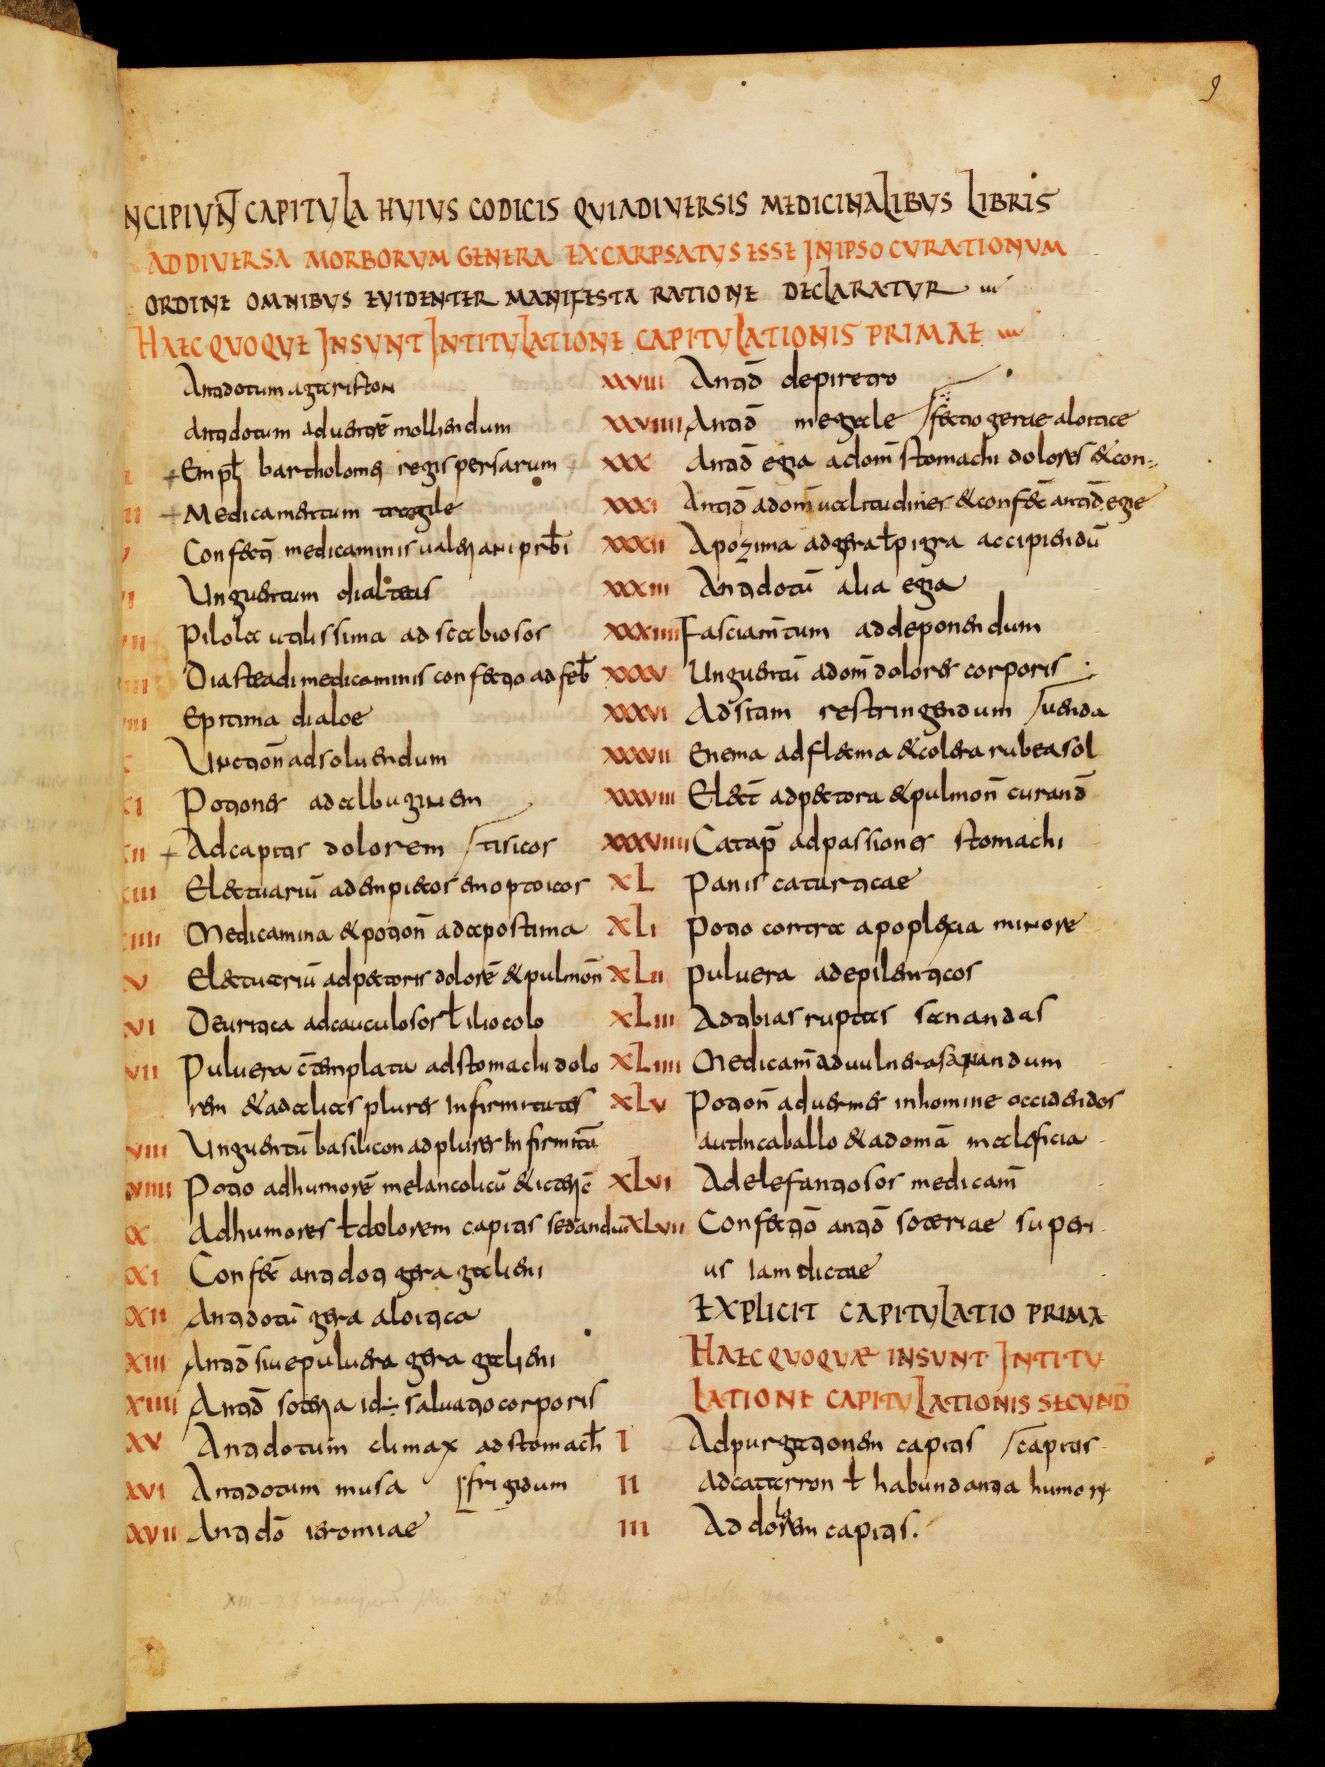 9
NCIPIUNT CAPITULA HUIUS CODICIS QUI A DIUERSIS MEDICINALIBUS LIBRIS
AD DIUERSA MORBORUM GENERA EXCARPSATUS ESSE IN IPSO CURATIONUM
ORDINE OMNIBUS EUIDENTER MANIFESTA RATIONE DECLARATUR
HAEC QUOQUE INSUNT INTITULATIONE CAPITULATIONIS PRIMAE
Antidotum agariston
Antidotum ad uentrē molliendum
Empł bartholomei regis persarum
Medicamentum tragile
Confecti medicaminis ualeriani prƀi
VI Unguentum dialteas
VII Pilola utilissima ad scabiosos
VIII Diasteadi medicaminis confectio ad feƀ
VIIII Epitima dialoe
X Unction̄ ad soluendum
XI Potiones ad albuginem
XII Ad capitis dolorem / tisicos
XIII Electuariū ad empiecos emoptoicos
XIIII Medicamina & potion̄ ad apostima
XV Electuariū ad pectoris dolorē & pulmon̄
XVI Deuriaca ad cauculosos ł iliocolo
XVII Puluera c̄templata ad stomachi dolo
rem & ad alias plures infirmitates
XVIII Unguentū basilicon ad plures infirmitā
XVIIII Potio ad humorē melancolicū & icteric̄
XX Ad humores ł dolorem capitis sedandū
XXI Confec̄ antidoti gera galieni
XXII Antidotū gera aloitica
XXIII Antid̄ siue puluera gera galieni
XXIIII Antid̄ soteria id ÷ saluatio corporis
XXV Antidotum climax ad stomach
XXVI Antidotum musa / frigidum
XXVII Antidō ieromiae
XXVIII Antid̄ de piretro
XXVIIII Antid̄ megale / fectio gerae aloitice
XXX Antid̄ egia ad om̄ stomachi dolores & con
XXXI Antid̄ ad om̄ ualitudines & confec̄ antid̄ egie
XXXII Apozima ad gera ł pigra accipiendū
XXXIII Antidotū alia egia
XXXIIII Fasciam̄tum ad deponendum
XXXV Unguentū ad om̄ dolores corporis
XXXVI Ad sitam restringendum / uenda
XXXVII Enema ad flecma & colera rubea sol
XXXVIII Elect̄ ad pectora & pulmon̄ curand̄
XXXVIIII Catap̄ ad passiones stomachi
XL Panis catarticae
XLI Potio contra apoplexia minore
XLII Puluera ad epilenticos
XLIII Ad tibias ruptas sanandas
XLIIII Medicam̄ ad uulnera sanandum
XLV Potion̄ ad uermes in homine occidendos
aut in caballo & ad omā maleficia
XLVI Ad elefantiosos medicam̄
XLVII Confectiō antid̄ soteriae superi
us iam dictae
EXPLICIT CAPITULATIO PRIMA
HAEC QUOQUAE INSUNT INTITU
LATIONE CAPITULATIONIS SECUND̄
I Ad purgationem capitis / capitis
II Ad catarron ł habundantia humor
III Ad dolorem capitis.